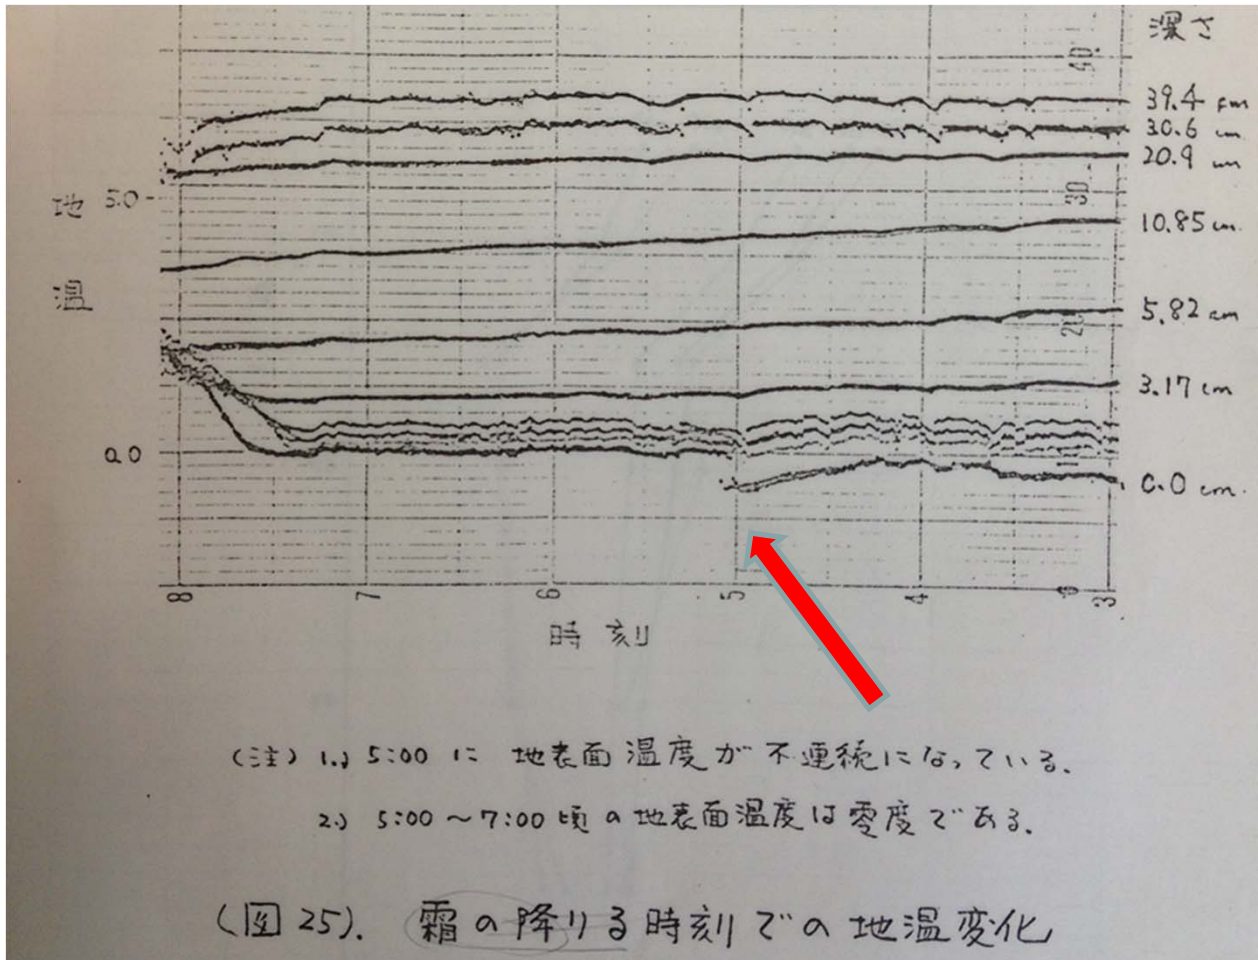 深さ
40.
39.4 cm
30.6 cm
20.9 cm
地 5.0
30
10.85 cm.
温
5.82 cm
20
3.17 cm
0.0
0.0 cm.
8 7 6 5 4 3
時刻
(注) 1.) 5:00 に 地表面温度が不連続になっている.
2.) 5:00〜7:00頃の地表面温度は零度である.
(図25). 霜の降りる時刻での地温変化